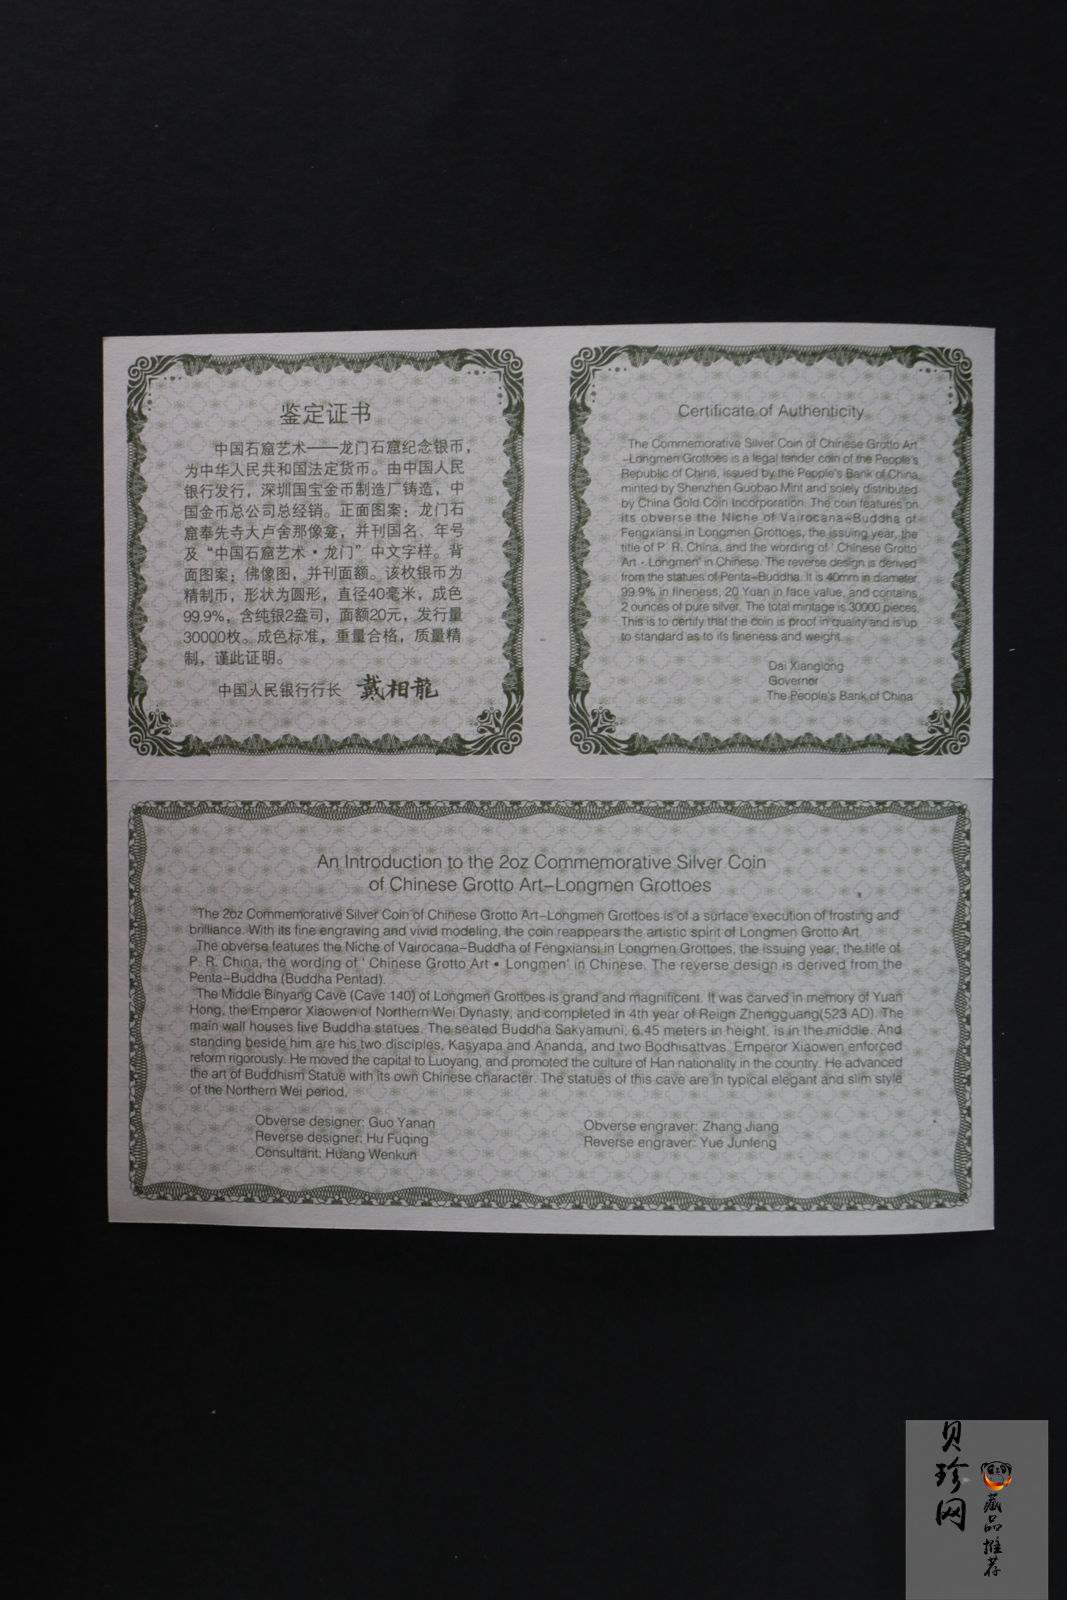 鉴定证书
中国石窟艺术——龙门石窟纪念银币,
为中华人民共和国法定货币。由中国人民
银行发行，深圳国宝金币制造厂铸造，中
国金币总公司总经销。正面图案：龙门石
窟奉先寺大卢舍那像龛，并刊国名、年号
及“中国石窟艺术·龙门”中文字样。背
面图案：佛像图，并刊面额。该枚银币为
精制币，形状为圆形，直径40毫米，成色
99.9%，含纯银2盎司，面额20元，发行量
30000枚。成色标准，重量合格，质量精
制，谨此证明。
中国人民银行行长 戴相龍
Certificate of Authenticity
The Commemorative Silver Coin of Chinese Grotto Art
-Longmen Grottoes is a legal tender coin of the People's
Republic of China, issued by the People's Bank of China,
minted by Shenzhen Guobao Mint and solely distributed
by China Gold Coin Incorporation. The coin features on
its obverse the Niche of Vairocana-Buddha of
Fengxiansi in Longmen Grottoes, the issuing year, the
title of P. R. China, and the wording of ' Chinese Grotto
Art · Longmen' in Chinese. The reverse design is derived
from the statues of Penta-Buddha. It is 40mm in diameter,
99.9% in fineness, 20 Yuan in face value, and contains
2 ounces of pure silver. The total mintage is 30000 pieces.
This is to certify that the coin is proof in quality and is up
to standard as to its fineness and weight.
Dai Xianglong
Governor
The People's Bank of China
An Introduction to the 2oz Commemorative Silver Coin
of Chinese Grotto Art-Longmen Grottoes
The 2oz Commemorative Silver Coin of Chinese Grotto Art-Longmen Grottoes is of a surface execution of frosting and
brilliance. With its fine engraving and vivid modeling, the coin reappears the artistic spirit of Longmen Grotto Art.
The obverse features the Niche of Vairocana-Buddha of Fengxiansi in Longmen Grottoes, the issuing year, the title of
P. R. China, the wording of ' Chinese Grotto Art • Longmen' in Chinese. The reverse design is derived from the
Penta-Buddha (Buddha Pentad).
The Middle Binyang Cave (Cave 140) of Longmen Grottoes is grand and magnificent. It was carved in memory of Yuan
Hong, the Emperor Xiaowen of Northern Wei Dynasty, and completed in 4th year of Reign Zhengguang(523 AD). The
main wall houses five Buddha statues. The seated Buddha Sakyamuni, 6.45 meters in height, is in the middle. And
standing beside him are his two disciples, Kasyapa and Ananda, and two Bodhisattvas. Emperor Xiaowen enforced
reform rigorously. He moved the capital to Luoyang, and promoted the culture of Han nationality in the country. He advanced
the art of Buddhism Statue with its own Chinese character. The statues of this cave are in typical elegant and slim style
of the Northern Wei period.
Obverse designer: Guo Yanan
Reverse designer: Hu Fuqing
Consultant: Huang Wenkun
Obverse engraver: Zhang Jiang
Reverse engraver: Yue Junfeng
贝珍网
藏品推荐